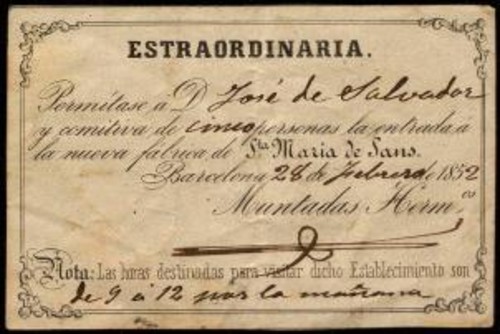 ESTRAORDINARIA.
Permítase á D José de Salvador
y comitiva de cinco personas la entrada á
la nueva fábrica de Sta. Maria de Sans.
Barcelona 28 de Febrero de 1852
Muntadas Herm.os
Nota: Las horas destinadas para visitar dicho Establecimiento son
de 9 á 12 por la mañana